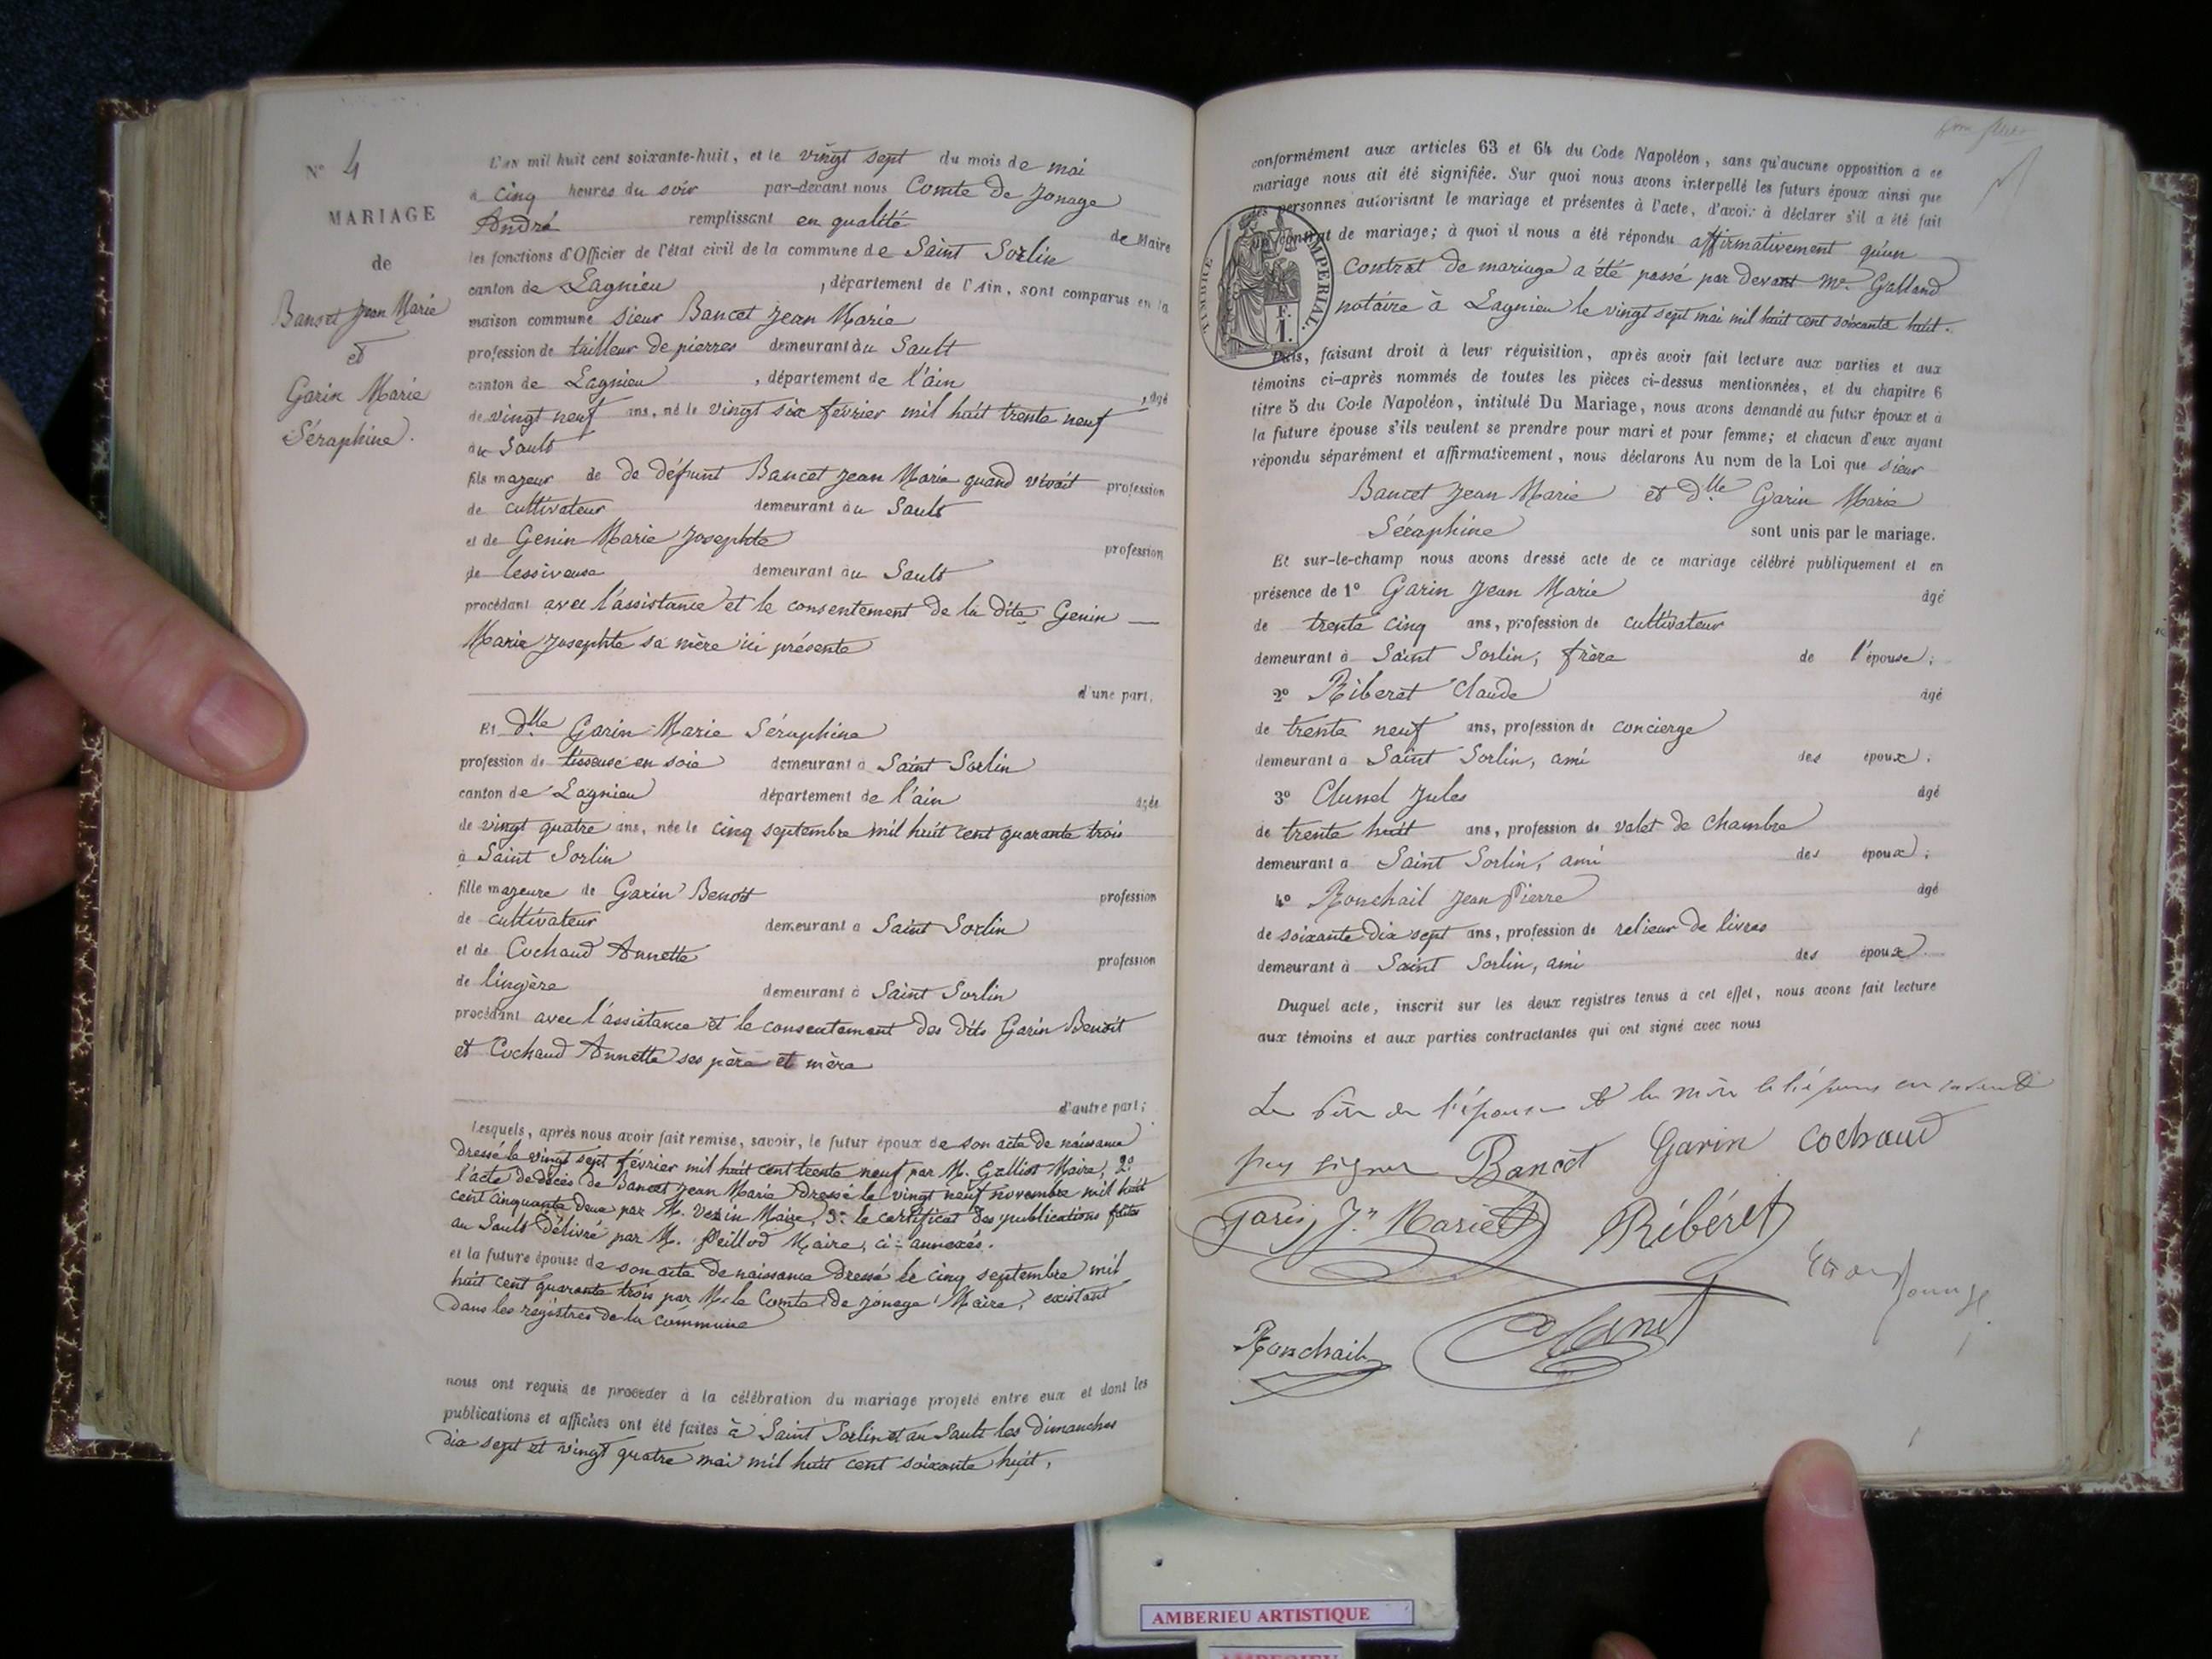 N° 4
MARIAGE
de
Banset Jean Marie
et
Garin Marie
Séraphine.
L'an mil huit cent soixante-huit, et le vingt sept du mois de mai
à cinq heures du soir par-devant nous Comte de Jonage
André remplissant en qualité de Maire
les fonctions d'Officier de l'état civil de la commune de Saint Sorlin
canton de Lagnieu, département de l'Ain, sont comparus en la
maison commune sieur Bancet Jean Marie
profession de tailleur de pierres demeurant au Sault
canton de Lagnieu, département de l'ain, âgé
de vingt neuf ans, né le vingt six février mil huit trente neuf
au Sault
fils majeur de de défunt Bancet Jean Marie quand vivait profession
de cultivateur demeurant au Sault
et de Genin Marie Josephte profession
de lessiveuse demeurant au Sault
procédant avec l'assistance et le consentement de la dite Genin
Marie Josephte sa mère ici présente
d'une part,
Et dlle Garin Marie Séraphine
profession de tisseuse en soie demeurant à Saint Sorlin
canton de Lagnieu département de l'ain âgée
de vingt quatre ans, née le cinq septembre mil huit cent quarante trois
à Saint Sorlin
fille majeure de Garin Benoit profession
de cultivateur demeurant à Saint Sorlin
et de Cochaud Annette profession
de lingère demeurant à Saint Sorlin
procédant avec l'assistance et le consentement des dits Garin Benoit
et Cochaud Annette ses père et mère
d'autre part;
Lesquels, après nous avoir fait remise, savoir, le futur époux de son acte de naissance
dressé le vingt sept février mil huit cent trente neuf par M. Galliot Maire, 2°
l'acte de décès de Bancet Jean Marie dressé le vingt neuf novembre mil huit
cent cinquante deux par M. Vezin Maire, 3° le certificat des publications faites
au Sault délivré par M. Peillod Maire, ci-annexés.
et la future épouse de son acte de naissance dressé le cinq septembre mil
huit cent quarante trois par M. le Comte de Jonage Maire, existant
dans les registres de la commune
nous ont requis de procéder à la célébration du mariage projeté entre eux et dont les
publications et affiches ont été faites à Saint Sorlin et au Sault les dimanches
dix sept et vingt quatre mai mil huit cent soixante huit,
conformément aux articles 63 et 64 du Code Napoléon, sans qu'aucune opposition à ce
mariage nous ait été signifiée. Sur quoi nous avons interpellé les futurs époux ainsi que
les personnes autorisant le mariage et présentes à l'acte, d'avoir à déclarer s'il a été fait
un contrat de mariage; à quoi il nous a été répondu affirmativement qu'un
Contrat de mariage a été passé par devant Me Galland
notaire à Lagnieu le vingt sept mai mil huit cent soixante huit.
TIMBRE IMPERIAL.
1 F.
Puis, faisant droit à leur réquisition, après avoir fait lecture aux parties et aux
témoins ci-après nommés de toutes les pièces ci-dessus mentionnées, et du chapitre 6
titre 5 du Code Napoléon, intitulé Du Mariage, nous avons demandé au futur époux et à
la future épouse s'ils veulent se prendre pour mari et pour femme; et chacun d'eux ayant
répondu séparément et affirmativement, nous déclarons Au nom de la Loi que sieur
Bancet Jean Marie et dlle Garin Marie
Séraphine sont unis par le mariage.
Et sur-le-champ nous avons dressé acte de ce mariage célébré publiquement et en
présence de 1° Garin Jean Marie âgé
de trente cinq ans, profession de cultivateur
demeurant à Saint Sorlin, frère de l'épouse;
2° Riberet Claude âgé
de trente neuf ans, profession de concierge
demeurant à Saint Sorlin, ami des époux;
3° Clunel Jules âgé
de trente huit ans, profession de valet de chambre
demeurant à Saint Sorlin, ami des époux;
4° Ronchail Jean Pierre âgé
de soixante dix sept ans, profession de relieur de livres
demeurant à Saint Sorlin, ami des époux.
Duquel acte, inscrit sur les deux registres tenus à cet effet, nous avons fait lecture
aux témoins et aux parties contractantes qui ont signé avec nous
Le père de l'épouse et la mère de l'époux
pas signer Bancet Garin Cochaud
Garin Jn Marie Ribéret
Ronchail
AMBERIEU ARTISTIQUE
AMBERIEU